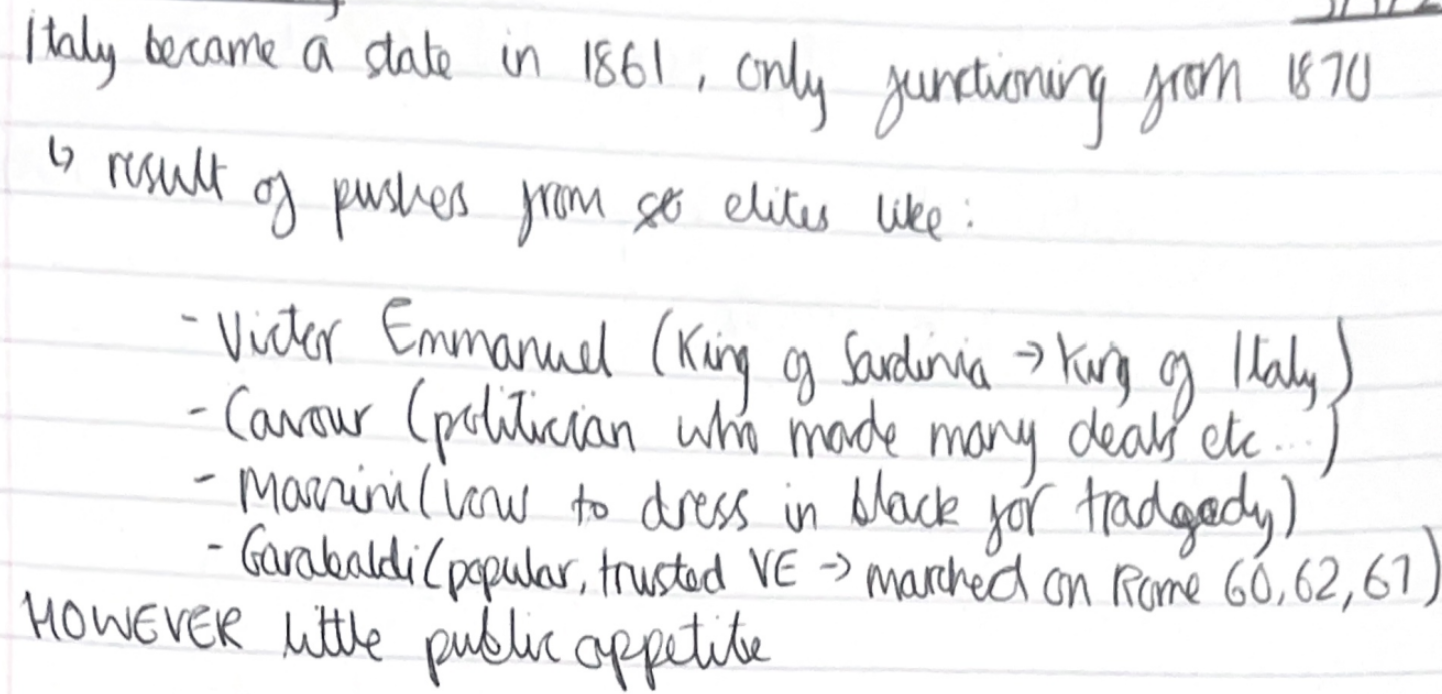 Italy became a state in 1861, only functioning from 1870
↳ result of pushes from elites like:
- Victor Emmanuel (King of Sardinia → King of Italy)
- Cavour (politician who made many deals etc...)
- Mazzini (vow to dress in black for tradgedy)
- Garabaldi (popular, trusted VE → marched on Rome 60, 62, 67)
HOWEVER little public appetite